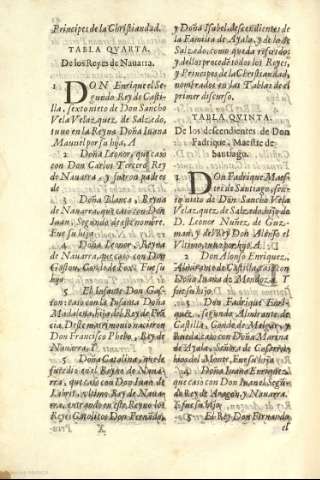 Principes de la Christiandad.
TABLA QVARTA.
De los Reyes de Nauarra.
1 DON Enrique el Se-
gundo Rey de Casti-
lla, sexto nieto de Don Sancho
Vela Velazquez, de Salzedo,
tuuo en la Reyna Doña Iuana
Manuel por su hija, A
2 Doña Leonor, que casò
con Don Carlos Tercero Rey
de Nauarra, y fueron padres
de
3 Doña Blanca, Reyna
de Nauarra, que casò con Don
Iuan, Segundo deste nombre.
Fue su hija
4 Doña Leonor, Reyna
de Nauarra, que casò con Don
Gaston, Conde de Fox. Fue su
hijo
5 El Infante Don Gas-
ton: casò con la Infanta Doña
Madalena, hija del Rey de Frã-
cia. Deste matrimonio nacieron
Don Francisco Phebo, Rey de
Nauarra. Y
5 Doña Catalina, que le
sucediò en el Reyno de Naua-
rra, que casò con Don Iuan de
Labrit, vltimo Rey de Naua-
rra, entrando en este Reyno los
Reyes Catolicos Don Fernãdo,
y Doña Isabel, descendientes de
la Familia de Ayala, y de los
Salzedo, como queda referido:
y dellos procedẽ todos los Reyes,
y Principes de la Christiandad,
nombrados en las Tablas de el
primer discurso.
TABLA QVINTA.
De los descendientes de Don
Fadrique, Maestre de
Santiago.
1 Don Fadrique Maes-
tre de Santiago, sex-
to nieto de Don Sancho Vela
Velazquez, de Salzedo, hijo de
D. Leonor Nuñez de Guz-
man, y del Rey Don Alonso el
Vltimo, tuuo por hijo, A
2 Don Alonso Enriquez,
Almirante de Castilla, casò con
Doña Iuana de Mendoza. Y
fue su hijo
3 Don Fadrique Enri-
quez, segundo Almirante de
Castilla, Conde de Melgar, y
Rueda, casò con Doña Marina
de Ayala, señora de Casarru-
bios del Monte. Fue su hija
4 Doña Iuana Enriquez,
que casò con Don Iuan el Segun-
do Rey de Aragon, y Nauarra.
Y fue su hijo
5 El Rey Don Fernando
X
Prin-
el